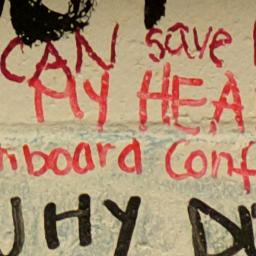 CAN save
MY HEA
nboard Conf
WHY D